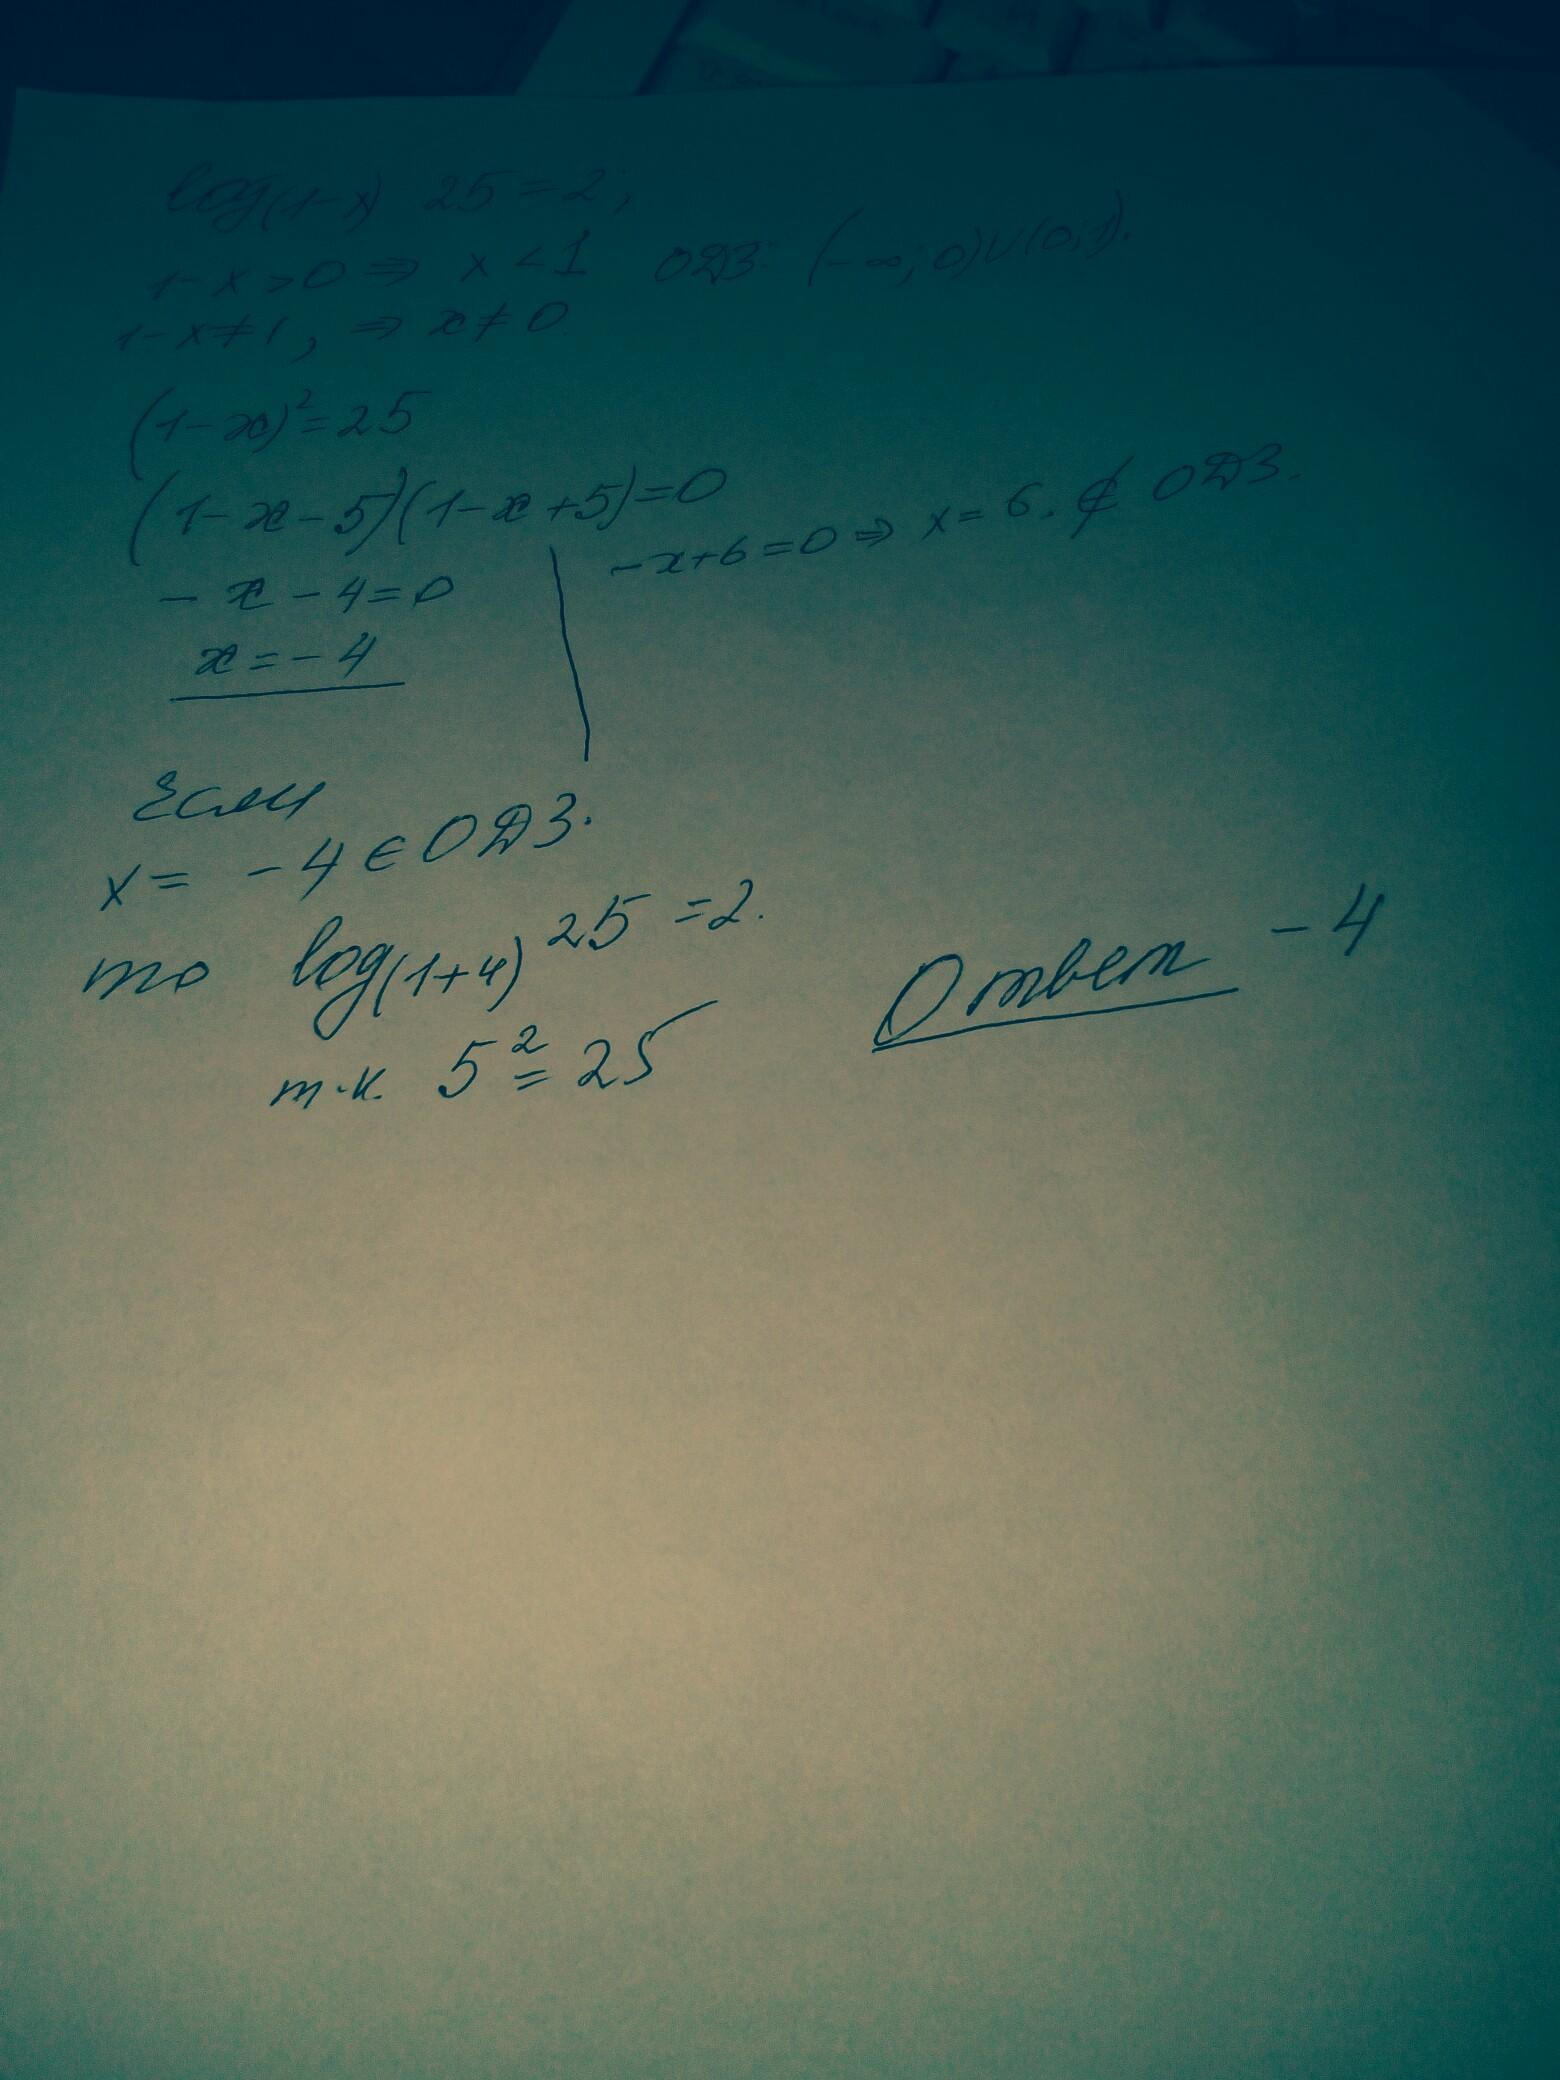 log(1-x) 25 = 2;
1-x>0 ⇒ x < 1 ОДЗ: (-∞; 0)∪(0; 1).
1-x≠1, ⇒ x ≠ 0
(1-x)²=25
(1-x-5)(1-x+5)=0
-x-4=0 | -x+6=0 ⇒ x=6. ∉ ОДЗ.
x=-4
Если
x= -4 ∈ ОДЗ.
то log(1+4) 25 = 2.
т.к. 5² = 25
Ответ -4